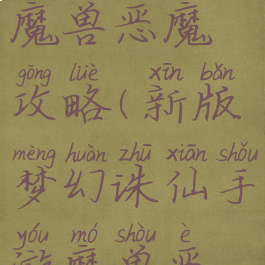 魔兽恶魔
gōng lüè xīn bǎn
攻略(新版
mèng huàn zhū xiān shǒu
梦幻诛仙手
yóu mó shòu è
游魔兽恶